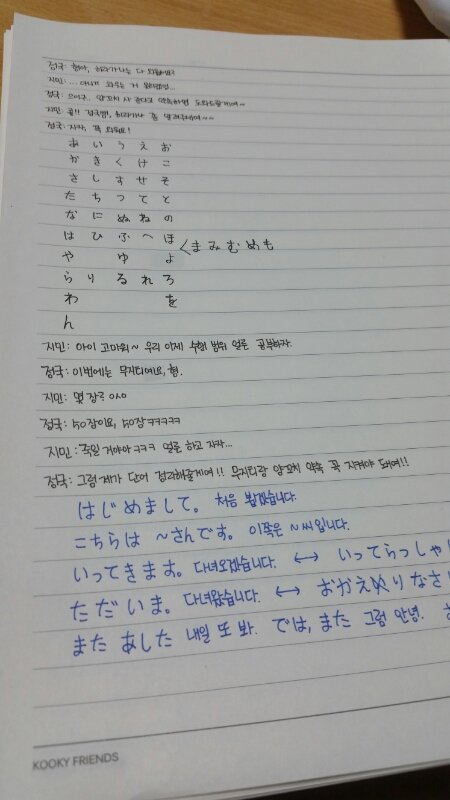 정국: 형아, 히라가나는 다 외웠어요?
지민: ... 아니 외우는 거
정국: 양꼬치 사 준다고 약속하면 도와드릴게여~
지민: 콜!! 정국쌤, 히라가나 좀 알려주세여~~
정국: 자자, 꼭 외워요!
あ い う え お
か き く け こ
さ し す せ そ
た ち つ て と
な に ぬ ね の
は ひ ふ へ ほ く ま み む め も
や ゆ よ
ら り る れ ろ
わ を
ん
지민: 아이 고마워~ 우리 이제 수행 범위 얼른 공부하자.
정국: 이번에는 무지티여요, 형.
지민: 몇 장ㄹ 0ㅅ0
정국: 50장이요, 50장ㅋㅋㅋㅋㅋ
지민: 죽일 거야아ㅋㅋㅋ 얼른 하고 자자...
정국: 그럼 제가 단어 정리해줄게여!! 무지티랑 양꼬치 약속 꼭 지켜야 돼여!!
はじめまして。 처음 뵙겠습니다.
こちらは ~さんです。 이쪽은 ~씨입니다.
いってきます。 다녀오겠습니다. ↔ いってらっしゃ
ただいま。 다녀왔습니다. ↔ おかえりなさ
また あした 내일 또 봐. では, また 그럼 안녕.
KOOKY FRIENDS